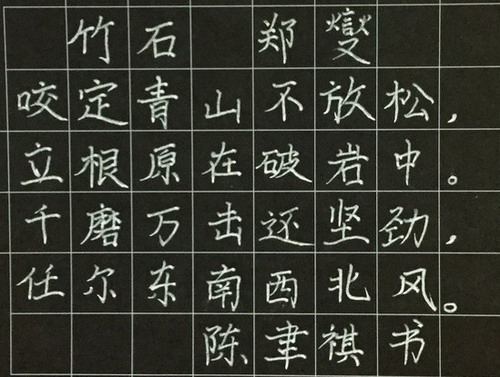 竹石 郑燮
咬定青山不放松，
立根原在破岩中。
千磨万击还坚劲，
任尔东南西北风。
陈聿祺书